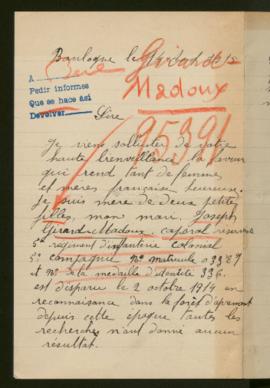 Boulogne le
Gérard
Madoux
A
Pedir informes
Que se hace ási
Devolver
Sire
9539
Je viens solliciter de votre
haute bienveillance la faveur
qui rend tant de femmes
et mères française heureuse.
Je suis mère de deux petites
filles, mon mari. Joseph
Gérard Madoux, caporal reserve
5e régiment d'infanterie colonial
5e compagnie No matricule
et No de la médaille d'identité 336.
est disparu le 2 octobre 1914 en
reconnaisance dans la forêt d'apremont
depuis cette époque toutes les
recherches n'ont donné aucun
résultat.